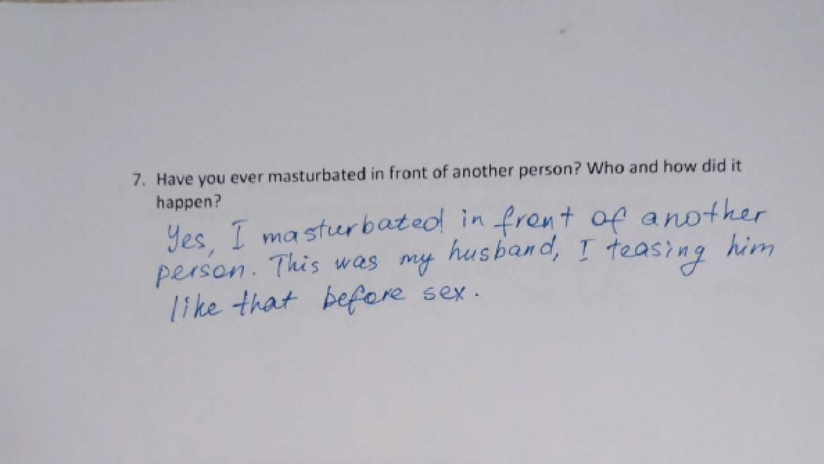 7. Have you ever masturbated in front of another person? Who and how did it
happen?
Yes, I masturbated in front of another
person. This was my husband, I teasing him
like that before sex.